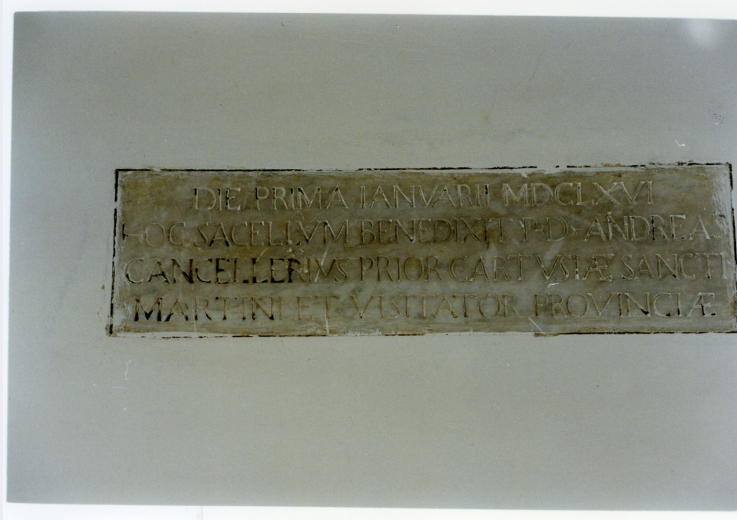 DIE PRIMA IANVARII MDCLXVI
HOC SACELLVM BENEDIXIT P· D· ANDREAS
CANCELLERIVS PRIOR CARTVSIÆ SANCTI
MARTINI ET VISITATOR PROVINCIÆ